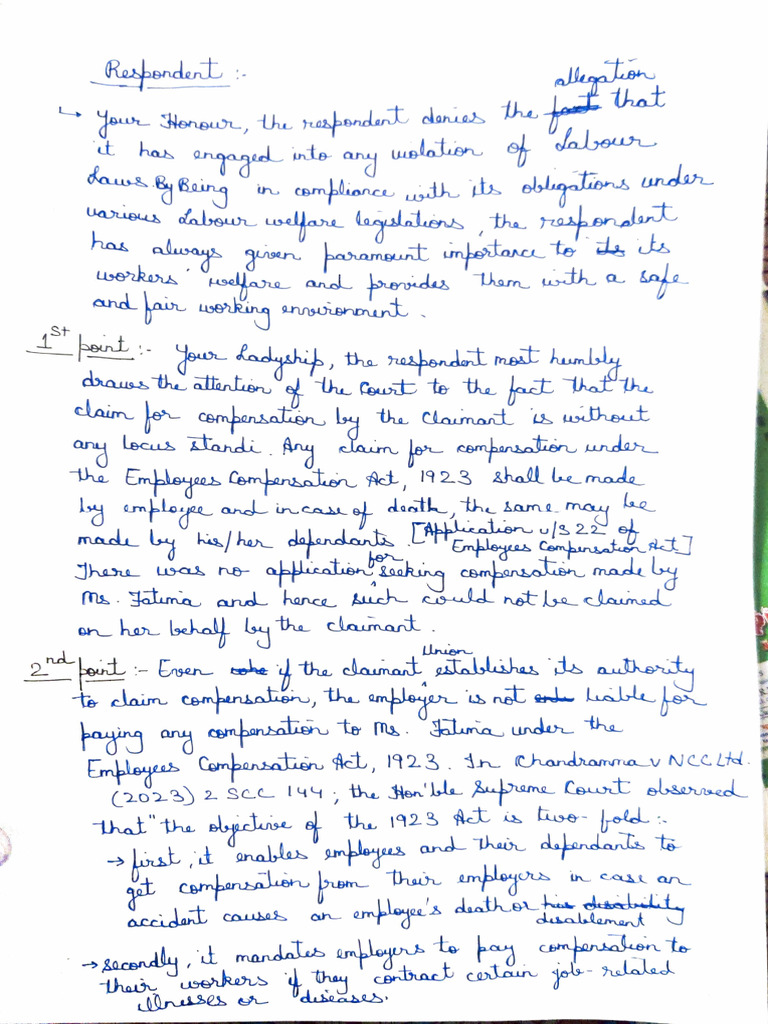 Respondent :-
allegation
↳ Your Honour, the respondent denies the fact that
it has engaged into any violation of Labour
Laws. By Being in compliance with its obligations under
various Labour welfare legislations, the respondent
has always given paramount importance to its its
workers' welfare and provides them with a safe
and fair working environment.
1st point :- Your Ladyship, the respondent most humbly
draws the attention of the Court to the fact that the
claim for compensation by the claimant is without
any locus standi. Any claim for compensation under
the Employees Compensation Act, 1923 shall be made
by employee and in case of death, the same may be
made by his/her dependants. [Application u/s 22 of
Employees Compensation Act.]
for
There was no application seeking compensation made by
Ms. Fatima and hence such could not be claimed
on her behalf by the claimant.
Union
2nd point :- Even if the claimant establishes its authority
to claim compensation, the employer is not liable for
paying any compensation to Ms. Fatima under the
Employees Compensation Act, 1923. In Chandramma v NCC Ltd.
(2023) 2 SCC 144; the Hon'ble Supreme Court observed
that "the objective of the 1923 Act is two-fold :-
→ first, it enables employees and their dependants to
get compensation from their employers in case an
accident causes an employee's death or his disability
disablement
→ secondly, it mandates employers to pay compensation to
their workers if they contract certain job-related
illnesses or diseases.